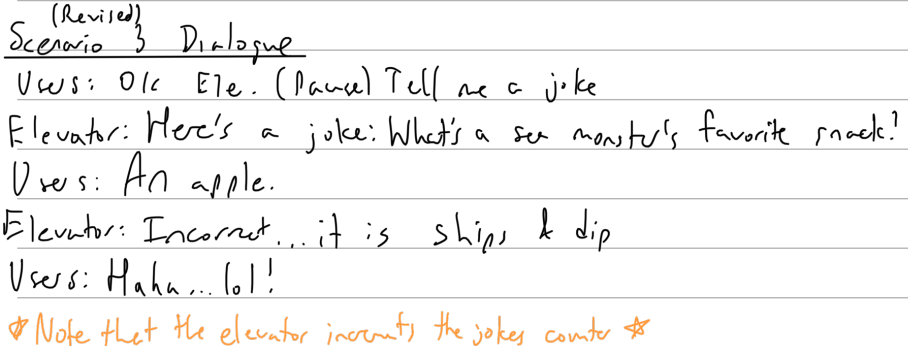 (Revised)
Scenario 3 Dialogue
Users: Ok Ele. (Pause) Tell me a joke
Elevator: Here's a joke: What's a sea monster's favorite snack?
Users: An apple.
Elevator: Incorrect... it is ships & dip
Users: Haha... lol!
☆ Note that the elevator increments the jokes counter ☆